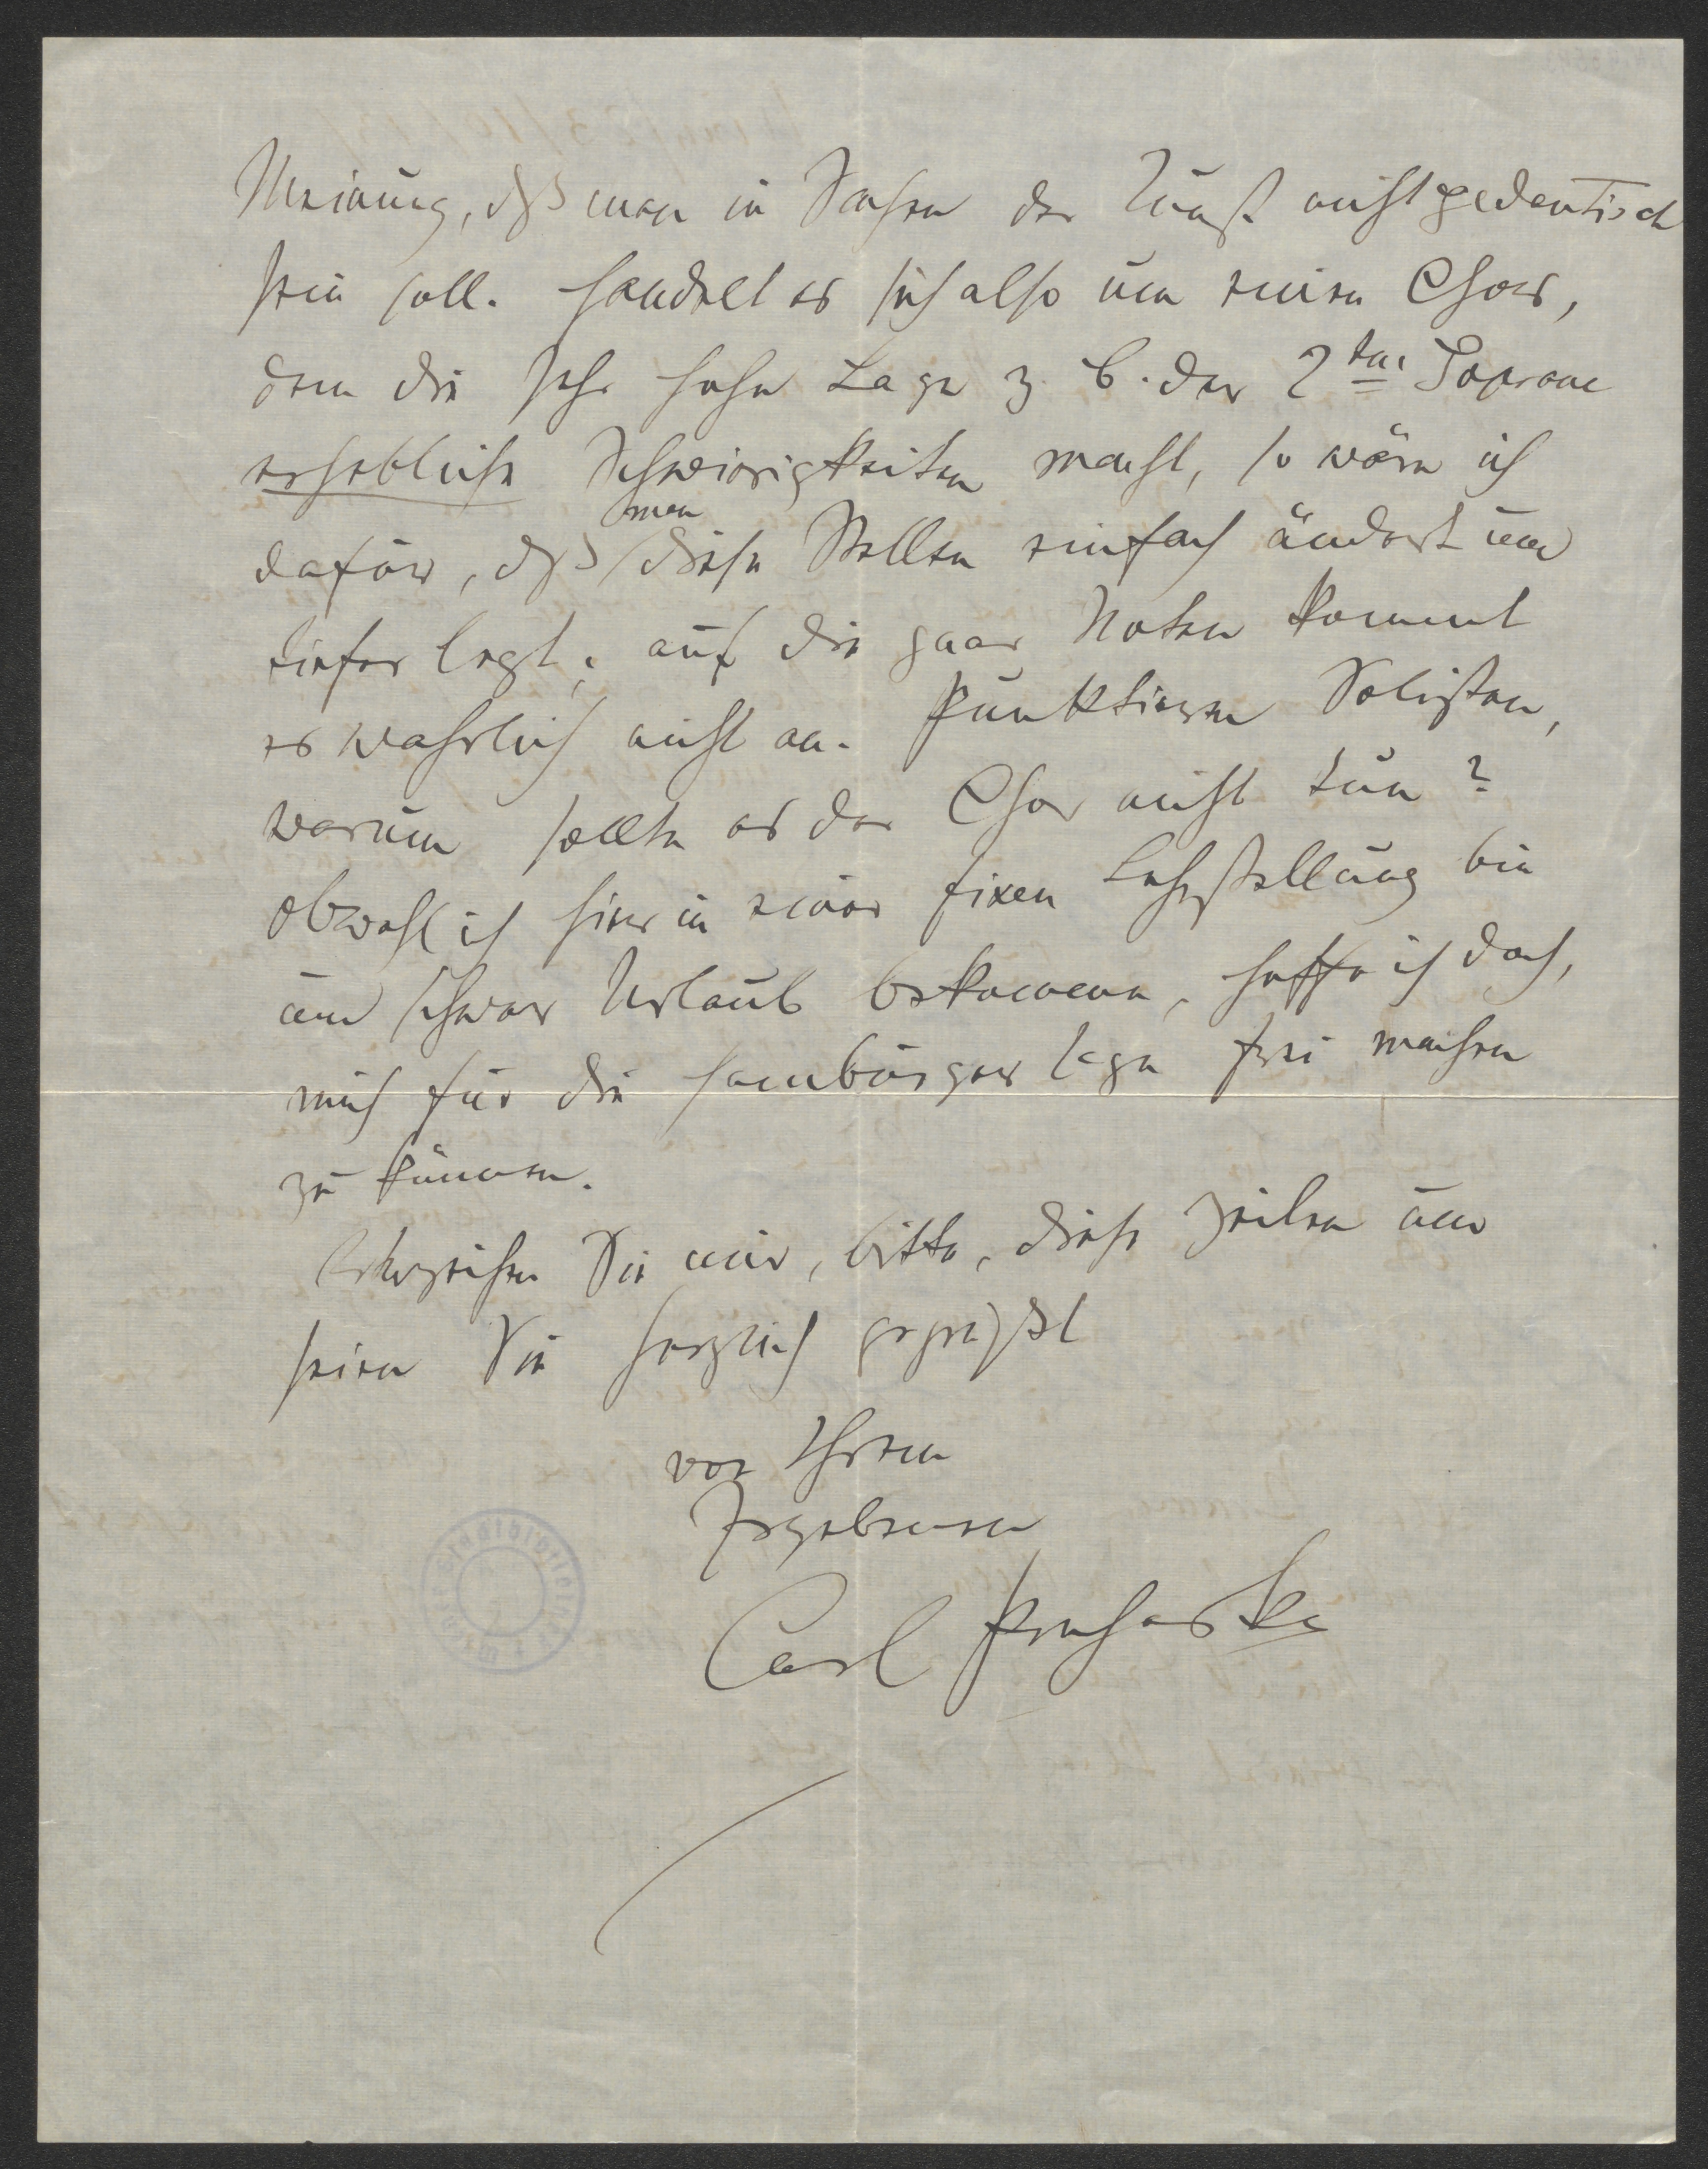 Meinung, dß man in Sachen der Kunst nicht pedantisch
sein soll. Handelt es sich also um einen Chor,
dem die sehr hohe Lage z. B. der 2ten Soprane
erhebliche Schwierigkeiten macht, so wäre ich
dafür, dß man diese Stellen einfach ändert und
tiefer legt; auf die paar Noten kommt
es wahrlich nicht an. Punktieren Solisten,
warum sollte es der Chor nicht tun?
Obwohl ich hier in einer fixen Lehrstellung bin
und schwer Urlaub bekomme, hoffe ich doch,
mich für die Hamburger Tage frei machen
zu können.
Verzeihen Sie mir, bitte, diese Zeilen und
seien Sie herzlich gegrüßt
von Ihrem
Ergebenen
Carl Prohaska